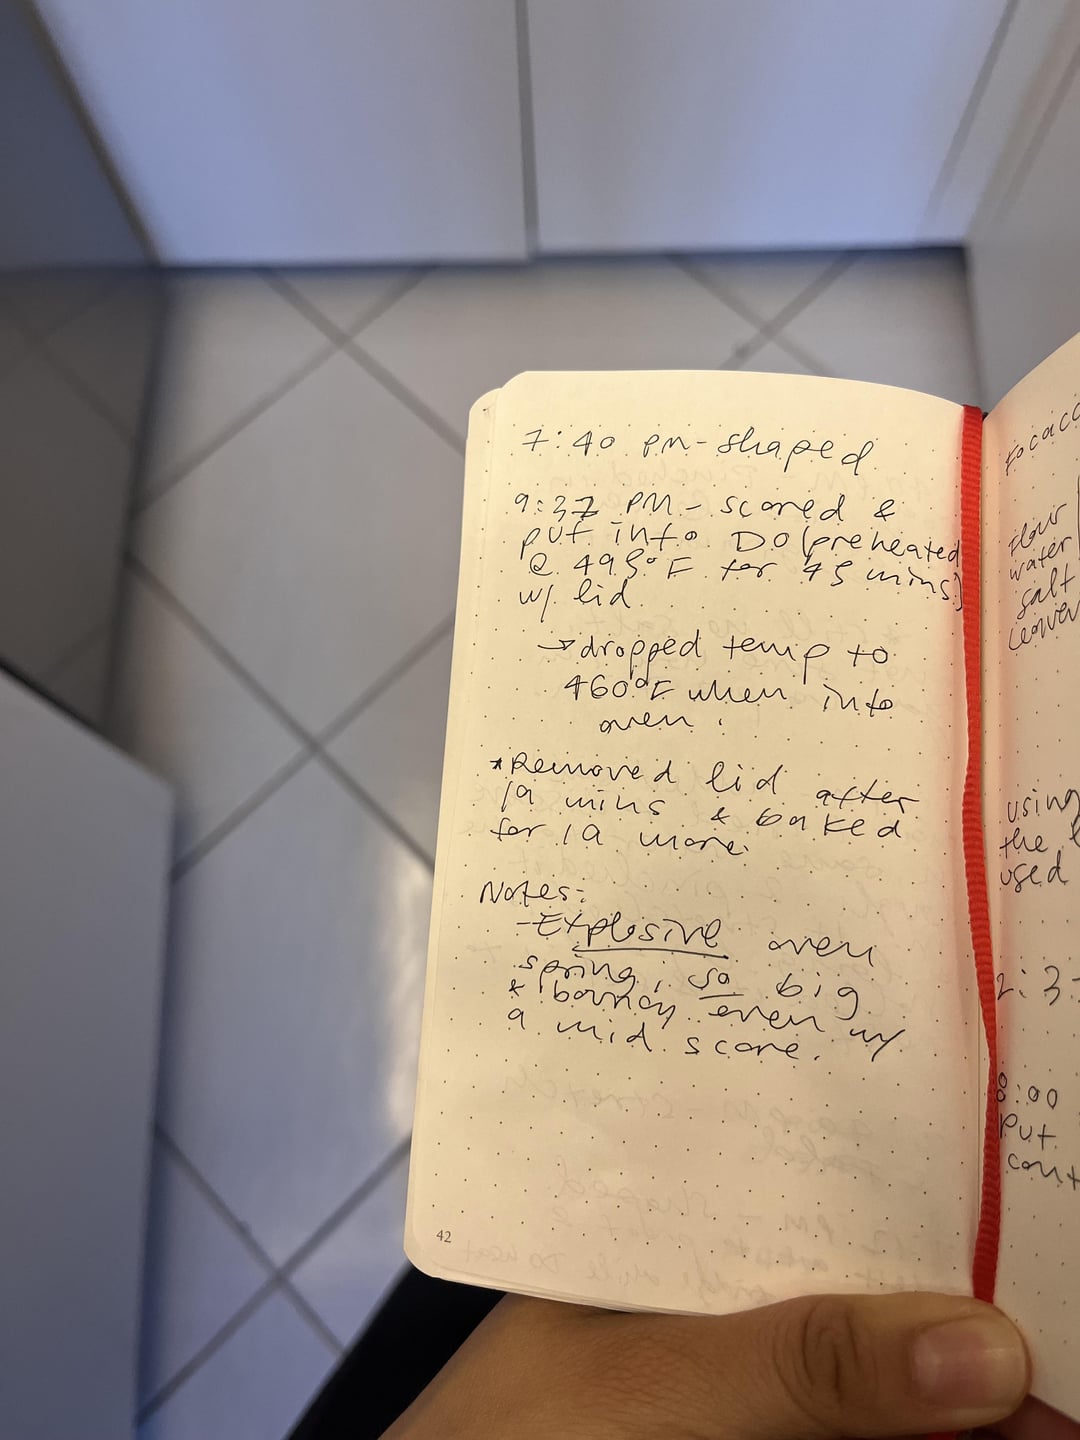 7:40 PM - shaped
9:37 PM - scored &
put into DO (preheated
@ 495°F for 45 mins)
w/ lid
→ dropped temp to
460°F when into
oven.
* Removed lid after
19 mins & baked
for 19 more.
Notes:
- Explosive oven
spring, so big
& bouncy even w/
a mid score.
42
Flour
water
salt
using
the
used
8:00
Put